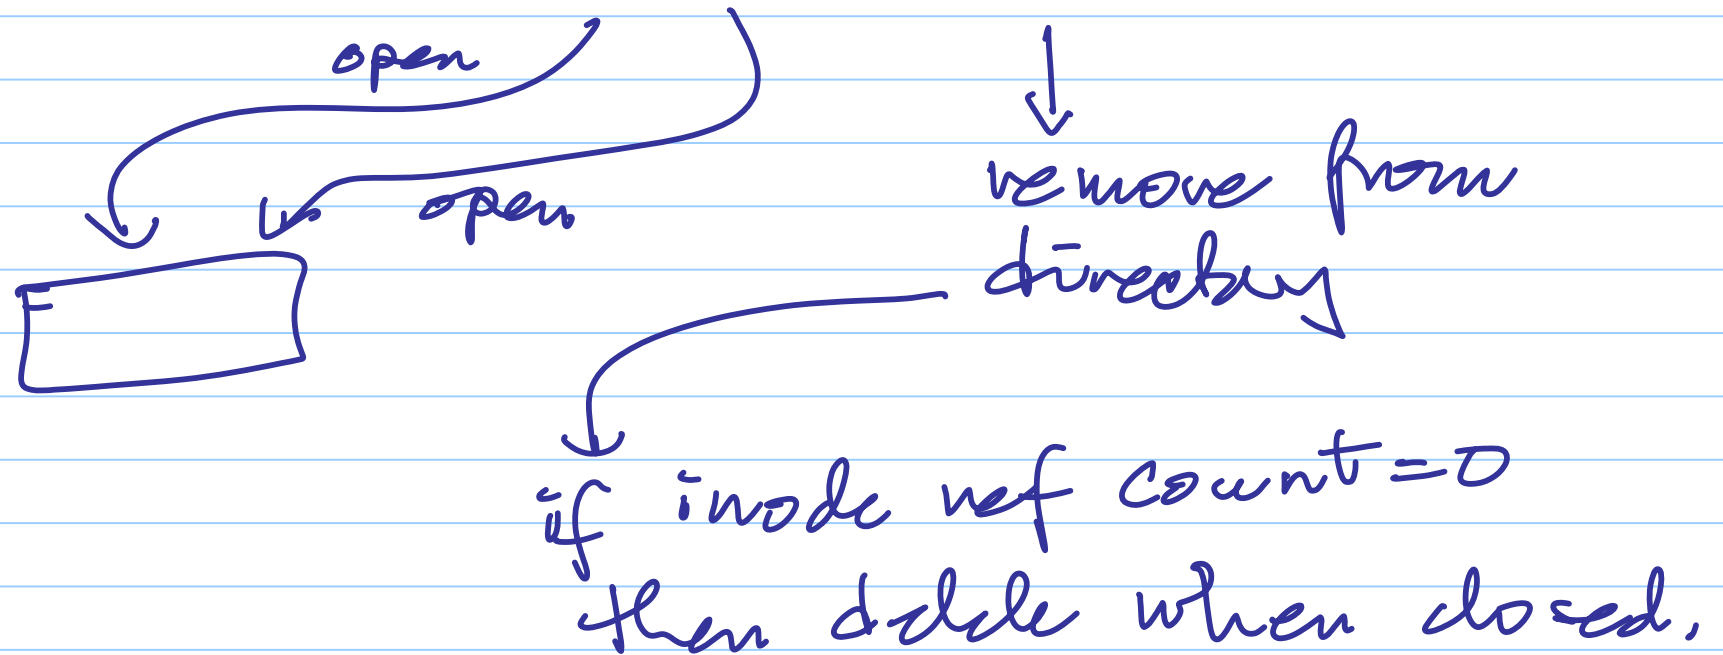 open
open
remove from
directory
if inode ref count = 0
then delete when closed.